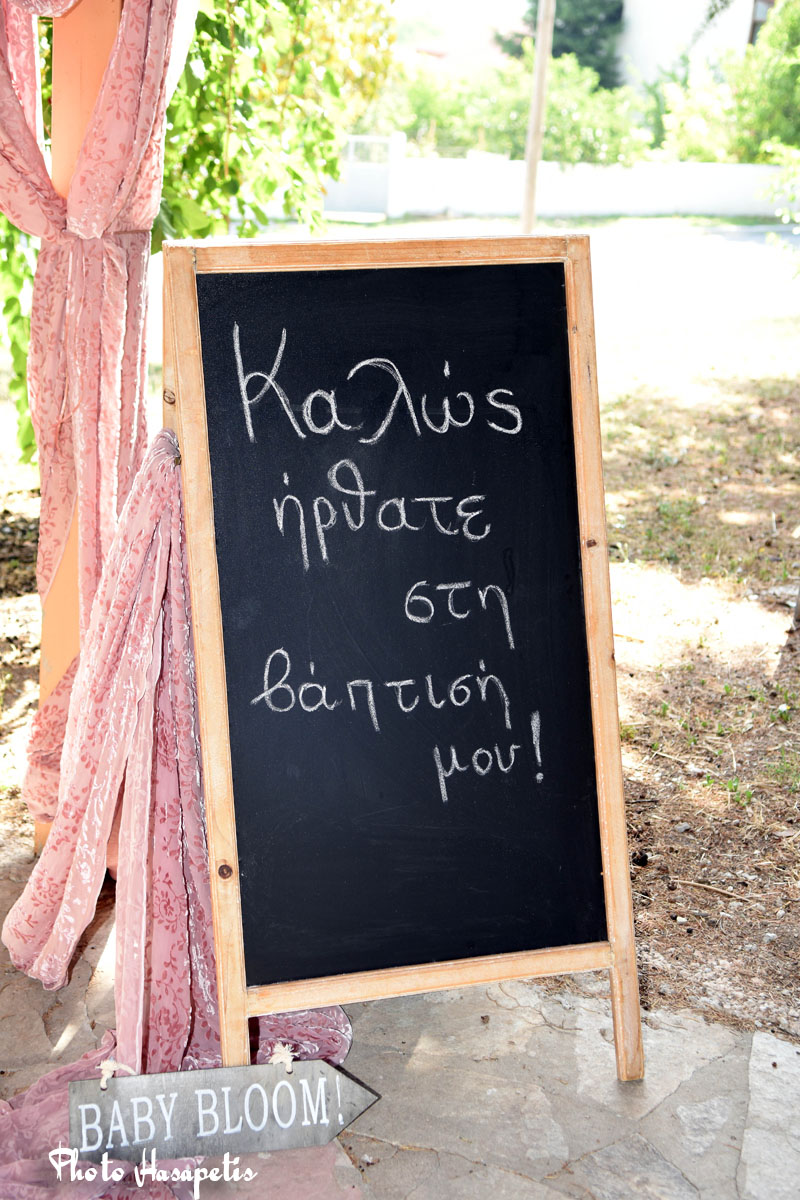 Καλώς
ήρθατε
στη
βάπτισή
μου!
BABY BLOOM!
Photo Hasapetis